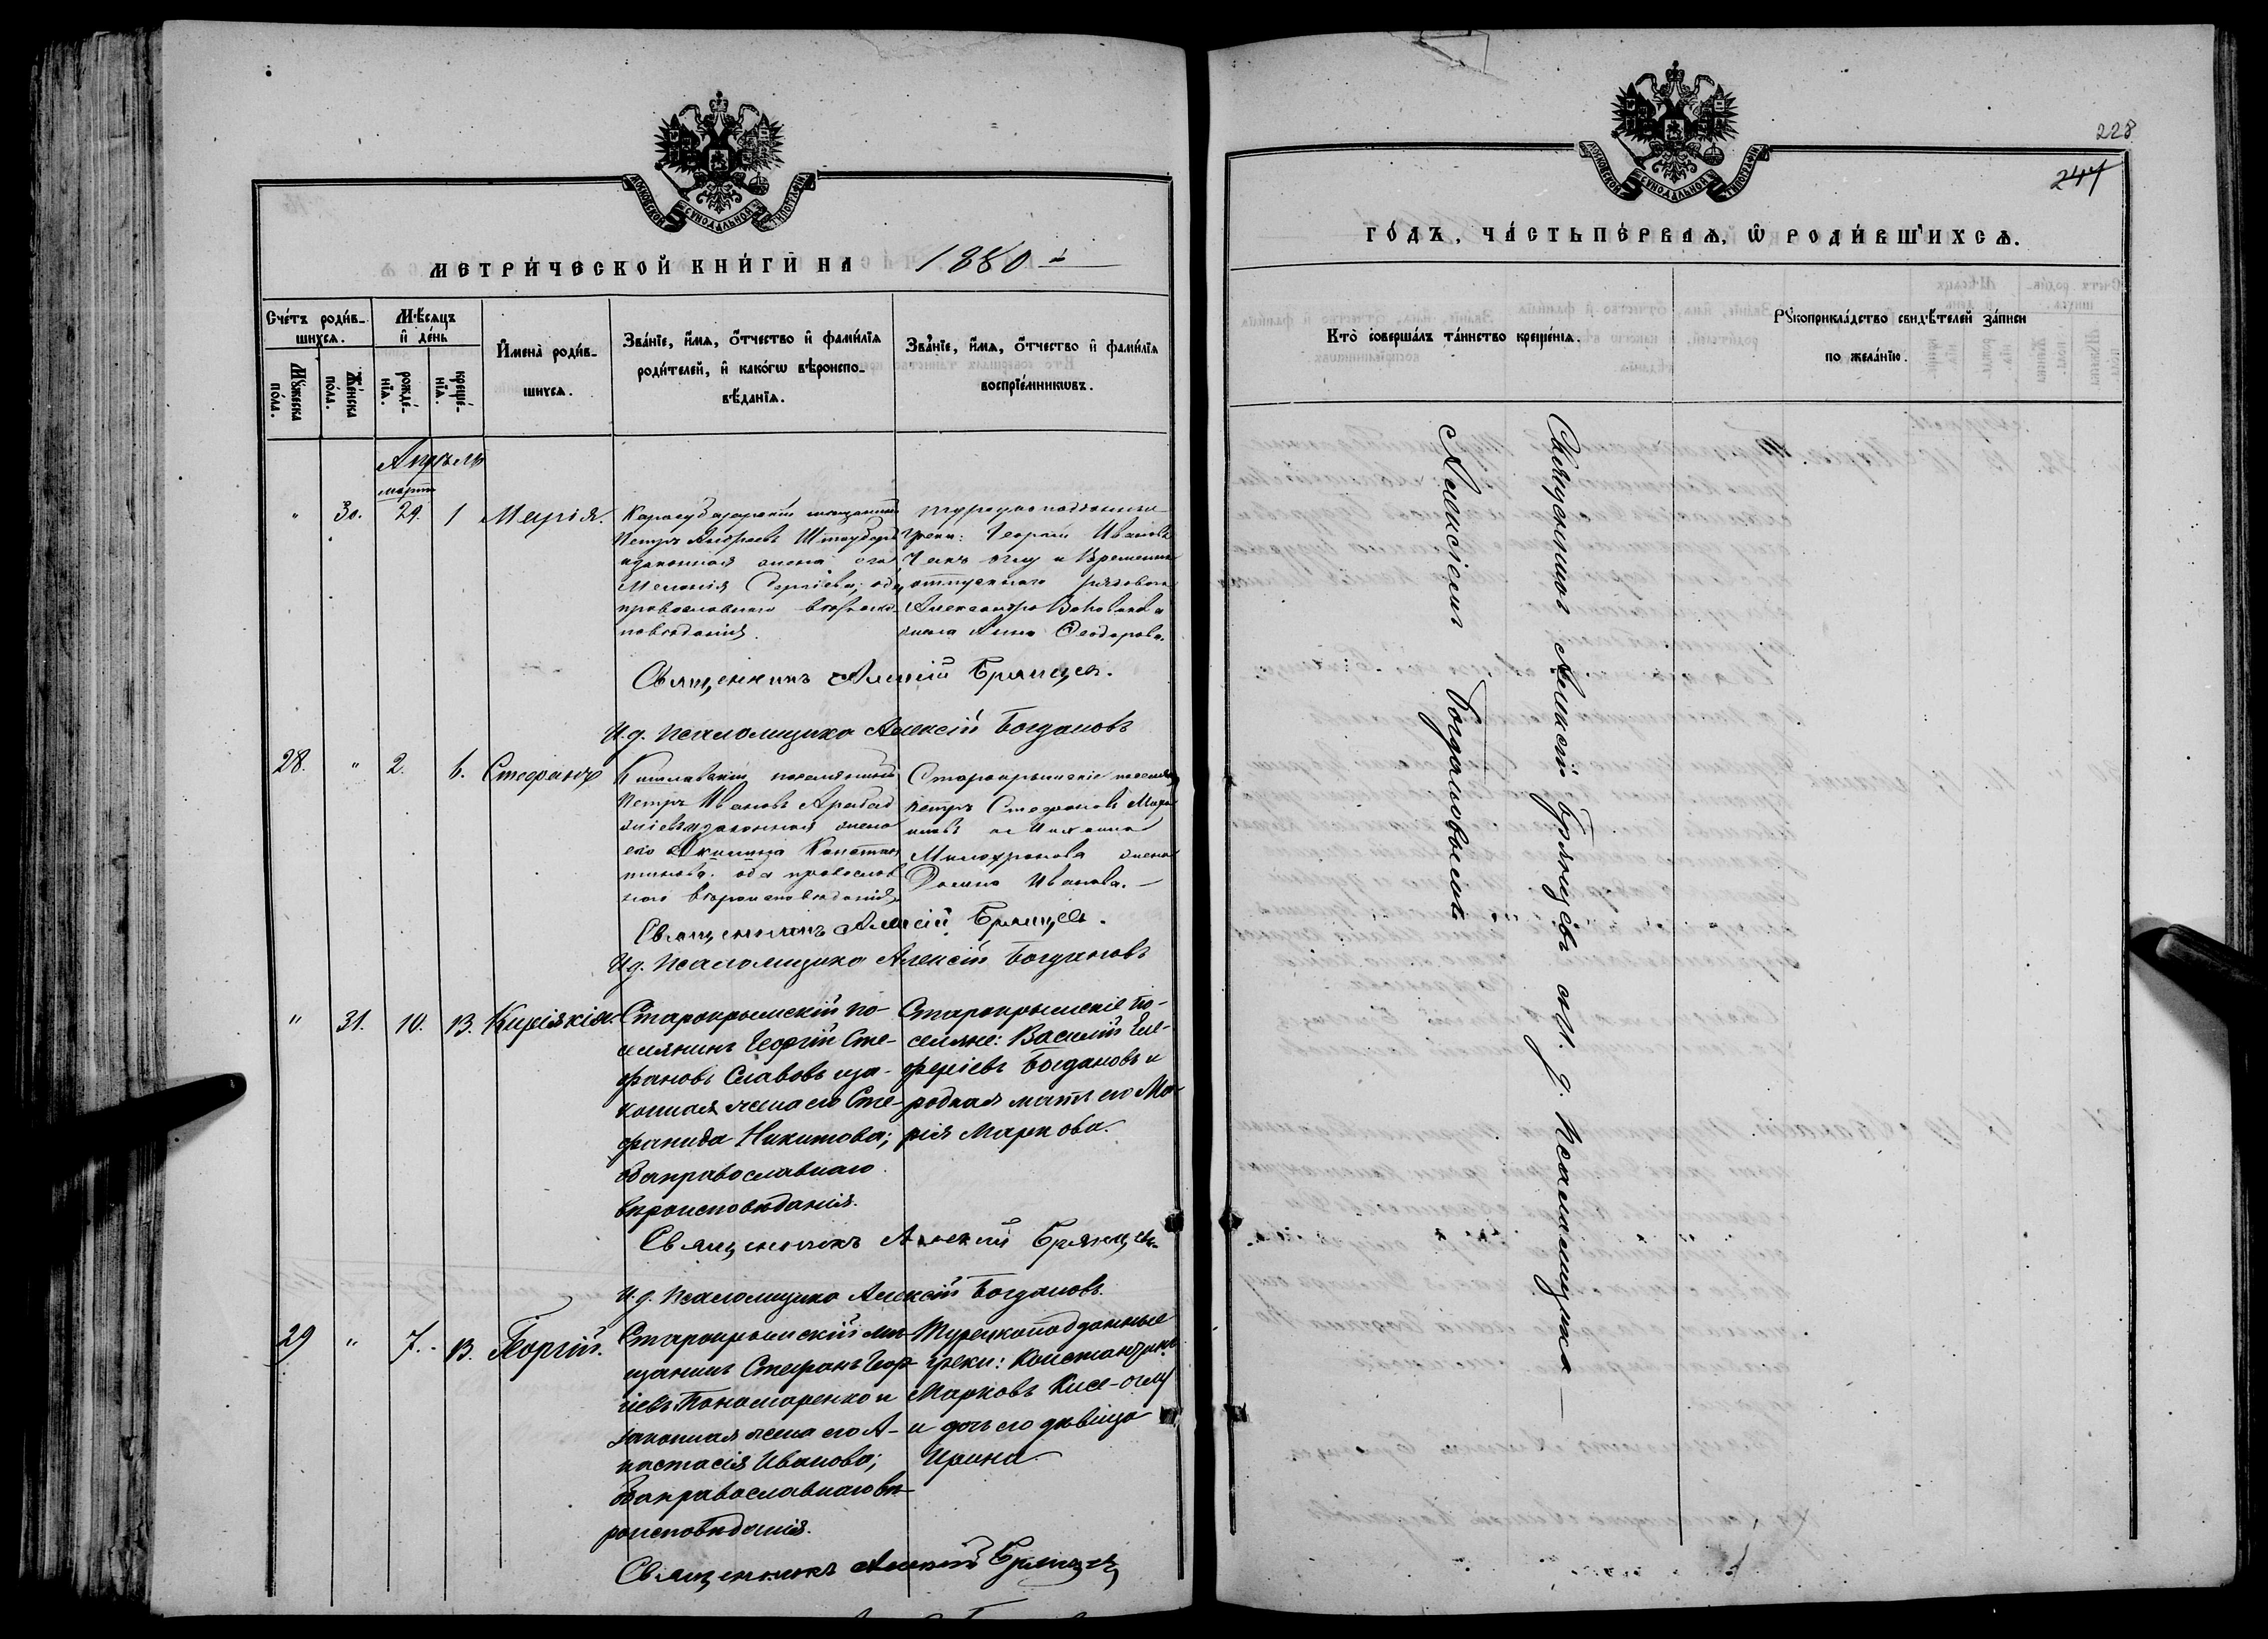 МОСКОВСКОЙ СУНОДАЛЬНОЙ ТИПОГРАФІИ
МЕТРИ́ЧЕСКОЙ КНИ́ГИ НА 1880 й
Сче́тъ роди́в-
шихсѧ.
Мꙋ́жеска
по́ла.
Же́нска
по́ла.
Мѣ́сѧцъ
и де́нь
рожде́-
нїѧ.
креще́-
нїѧ.
И҆мена̀ роди́в-
шихсѧ.
Зва́нїе, и҆́мѧ, ѻ҆́тчество и҆ фами́лїѧ
роди́телей, и҆ како́гѡ вѣроиспо-
вѣ́данїѧ.
Зва́нїе, и҆́мѧ, ѻ҆́тчество и҆ фами́лїѧ
воспрїе́мникѡвъ.
Апрѣль
мартъ
" 30. 29. 1 Марія.
Карасубазарскій мещанинъ
Петръ Андреевъ
изаконная жена его
Меланія Сергіева; оба
православнаго вѣроис-
повѣданія.
турецкоподданный
грекъ: Георгій Ивановъ
Чакъ оглу и Временно
отпускного рядового
Александра
жена Анна Ѳеодорова.
Священникъ Алексій Брянцев.
И.д. Псаломщика Алексій Богдановъ
28. " 2. 6. Стефанъ
Кишлавскій поселянинъ
Петръ Ивановъ Арабад
жіевъ изаконная жена
его Акилина Констан
тинова. оба православ
наго вѣроисповѣданія
Старокрымскіе поселяне
Петръ Стефановъ Мари
новъ и
жена
Домна Иванова.
Священникъ Алексій Брянцев.
И.д. Псаломщика Алексій Богдановъ
" 31. 10. 13. Киріакія.
Старокрымскій по-
селянинъ Георгій Сте-
фановъ Славовъ иза-
конная жена его Сте-
фанида Никитова;
оба православнаго
вѣроисповѣданія.
Старокрымскіе по-
селяне: Василій Еле-
феріевъ Богдановъ и
родная мать его Ма-
рія Маркова.
Священникъ Алексій Брянцев.
И.д. Псаломщика Алексій Богдановъ.
29 " 7. 13. Георгій.
Старокрымскій мѣ-
щанинъ Стефанъ Геор-
гіевъ Понамаренко и
законная жена его А-
настасія Иванова;
оба православнаго вѣ-
роисповѣданія.
Турецкоподданные
греки: Константинъ
Марковъ Кисе-оглу
и дочь его дѣвица
Ирина
Священникъ Алексій Брянцев
228
247
МОСКОВСКОЙ СУНОДАЛЬНОЙ ТИПОГРАФІИ
ГО́ДЪ, ЧА́СТЬ ПЕ́РВАѦ, Ѡ҆ РОДИ́ВШИХСѦ.
Кто̀ соверша́лъ та́инство креще́нїѧ.
Рꙋкоприкла́дство свидѣ́телей за́писи
по жела́нїю.
Священникъ Алексій Брянцевъ съ И. д. Псаломщика
Алексіемъ Богдановымъ